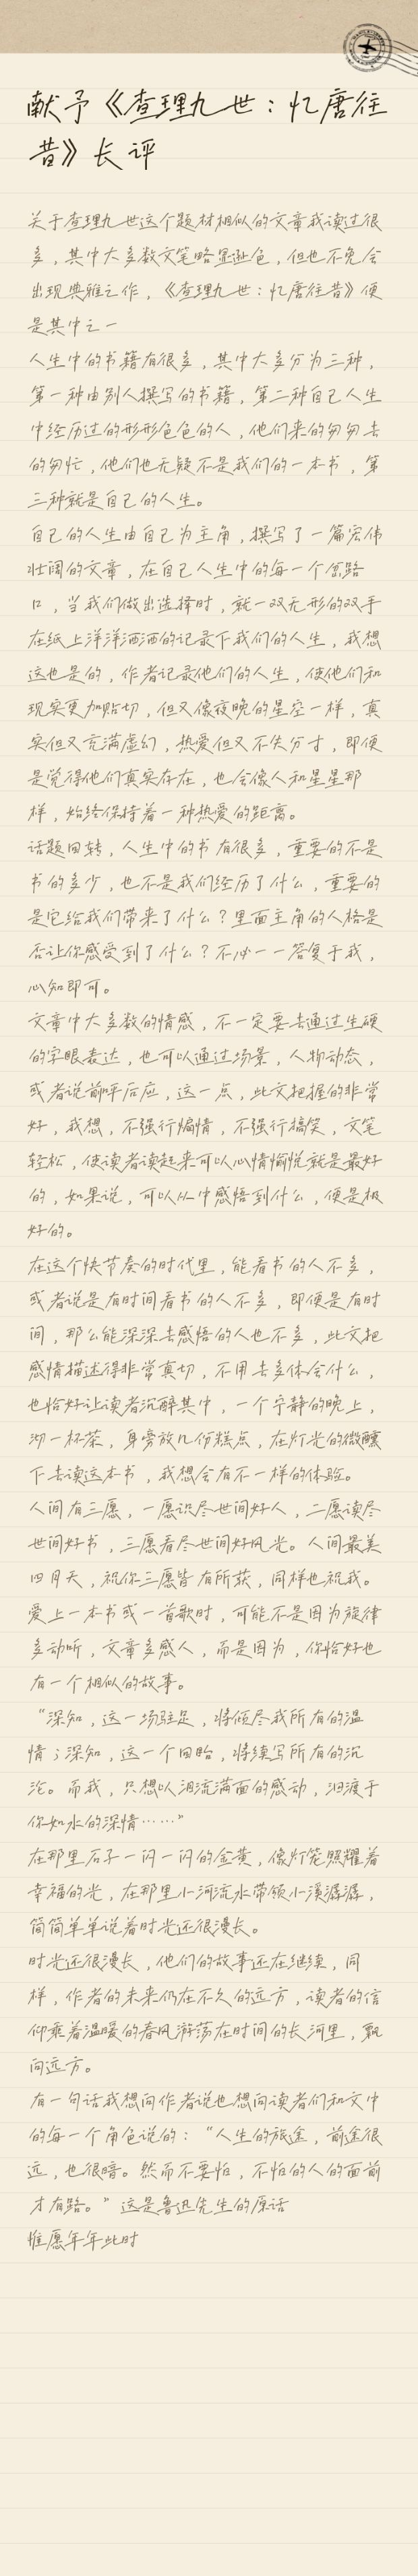 献予《查理九世：忆唐往
昔》长评
关于查理九世这个题材相似的文章我读过很
多，其中大多数文笔略显逊色，但也不免会
出现典雅之作，《查理九世：忆唐往昔》便
是其中之一
人生中的书籍有很多，其中大多分为三种，
第一种由别人撰写的书籍，第二种自己人生
中经历过的形形色色的人，他们来的匆匆去
的匆忙，他们也无疑不是我们的一本书，第
三种就是自己的人生。
自己的人生由自己为主角，撰写了一篇宏伟
壮阔的文章，在自己人生中的每一个岔路
口，当我们做出选择时，就一双无形的双手
在纸上洋洋洒洒的记录下我们的人生，我想
这也是的，作者记录他们的人生，使他们和
现实更加贴切，但又像夜晚的星空一样，真
实但又充满虚幻，热爱但又不失分寸，即便
是觉得他们真实存在，也会像人和星星那
样，始终保持着一种热爱的距离。
话题回转，人生中的书有很多，重要的不是
书的多少，也不是我们经历了什么，重要的
是它给我们带来了什么？里面主角的人格是
否让你感受到了什么？不必一一答复于我，
心知即可。
文章中大多数的情感，不一定要去通过生硬
的字眼表达，也可以通过场景，人物动态，
或者说前呼后应，这一点，此文把握的非常
好，我想，不强行煽情，不强行搞笑，文笔
轻松，使读者读起来可以心情愉悦就是最好
的，如果说，可以从中感悟到什么，便是极
好的。
在这个快节奏的时代里，能看书的人不多，
或者说是有时间看书的人不多，即便是有时
间，那么能深深去感悟的人也不多，此文把
感情描述得非常真切，不用去多体会什么，
也恰好让读者沉醉其中，一个宁静的晚上，
沏一杯茶，身旁放几份糕点，在灯光的微醺
下去读这本书，我想会有不一样的体验。
人间有三愿，一愿识尽世间好人，二愿读尽
世间好书，三愿看尽世间好风光。人间最美
四月天，祝你三愿皆有所获，同样也祝我。
爱上一本书或一首歌时，可能不是因为旋律
多动听，文章多感人，而是因为，你恰好也
有一个相似的故事。
“深知，这一场驻足，将倾尽我所有的温
情；深知，这一个回眸，将续写所有的沉
沦。而我，只想以泪流满面的感动，泅渡于
你如水的深情……”
在那里石子一闪一闪的金黄，像灯笼照耀着
幸福的光，在那里小河流水带领小溪潺潺，
简简单单说着时光还很漫长。
时光还很漫长，他们的故事还在继续，同
样，作者的未来仍在不久的远方，读者的信
仰乘着温暖的春风游荡在时间的长河里，飘
向远方。
有一句话我想向作者说也想向读者们和文中
的每一个角色说的：“人生的旅途，前途很
远，也很暗。然而不要怕，不怕的人的面前
才有路。”这是鲁迅先生的原话
惟愿年年此时